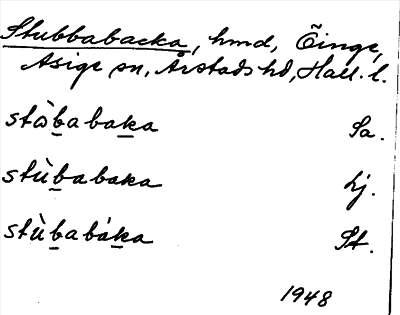 Stubbabacka, hmd, Õinge,
Asige sn, Årstads hd, Hall. l.
stòbabaka Sa.
stùbabaka Lj.
stùbabáka St.
1948